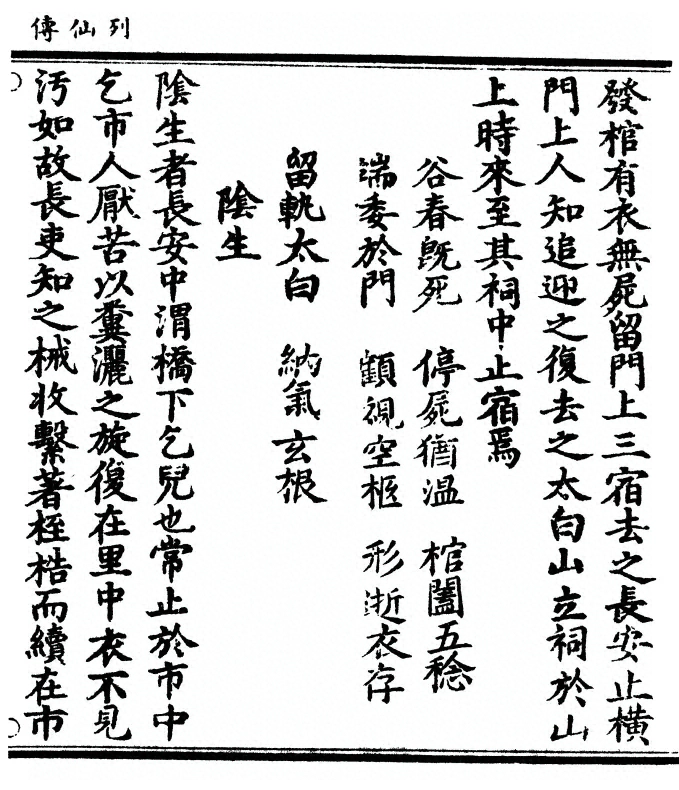 列仙傳
發棺有衣無屍留門上三宿去之長安止橫
門上人知追迎之復去之太白山立祠於山
上時來至其祠中止宿焉
谷春既死 停屍猶溫 棺闔五稔
端委於門 顧視空柩 形逝衣存
留軌太白 納氣玄根
陰生
陰生者長安中渭橋下乞兒也常止於市中
乞市人厭苦以糞灑之旋復在里中衣不見
汚如故長吏知之械收繫著桎梏而續在市